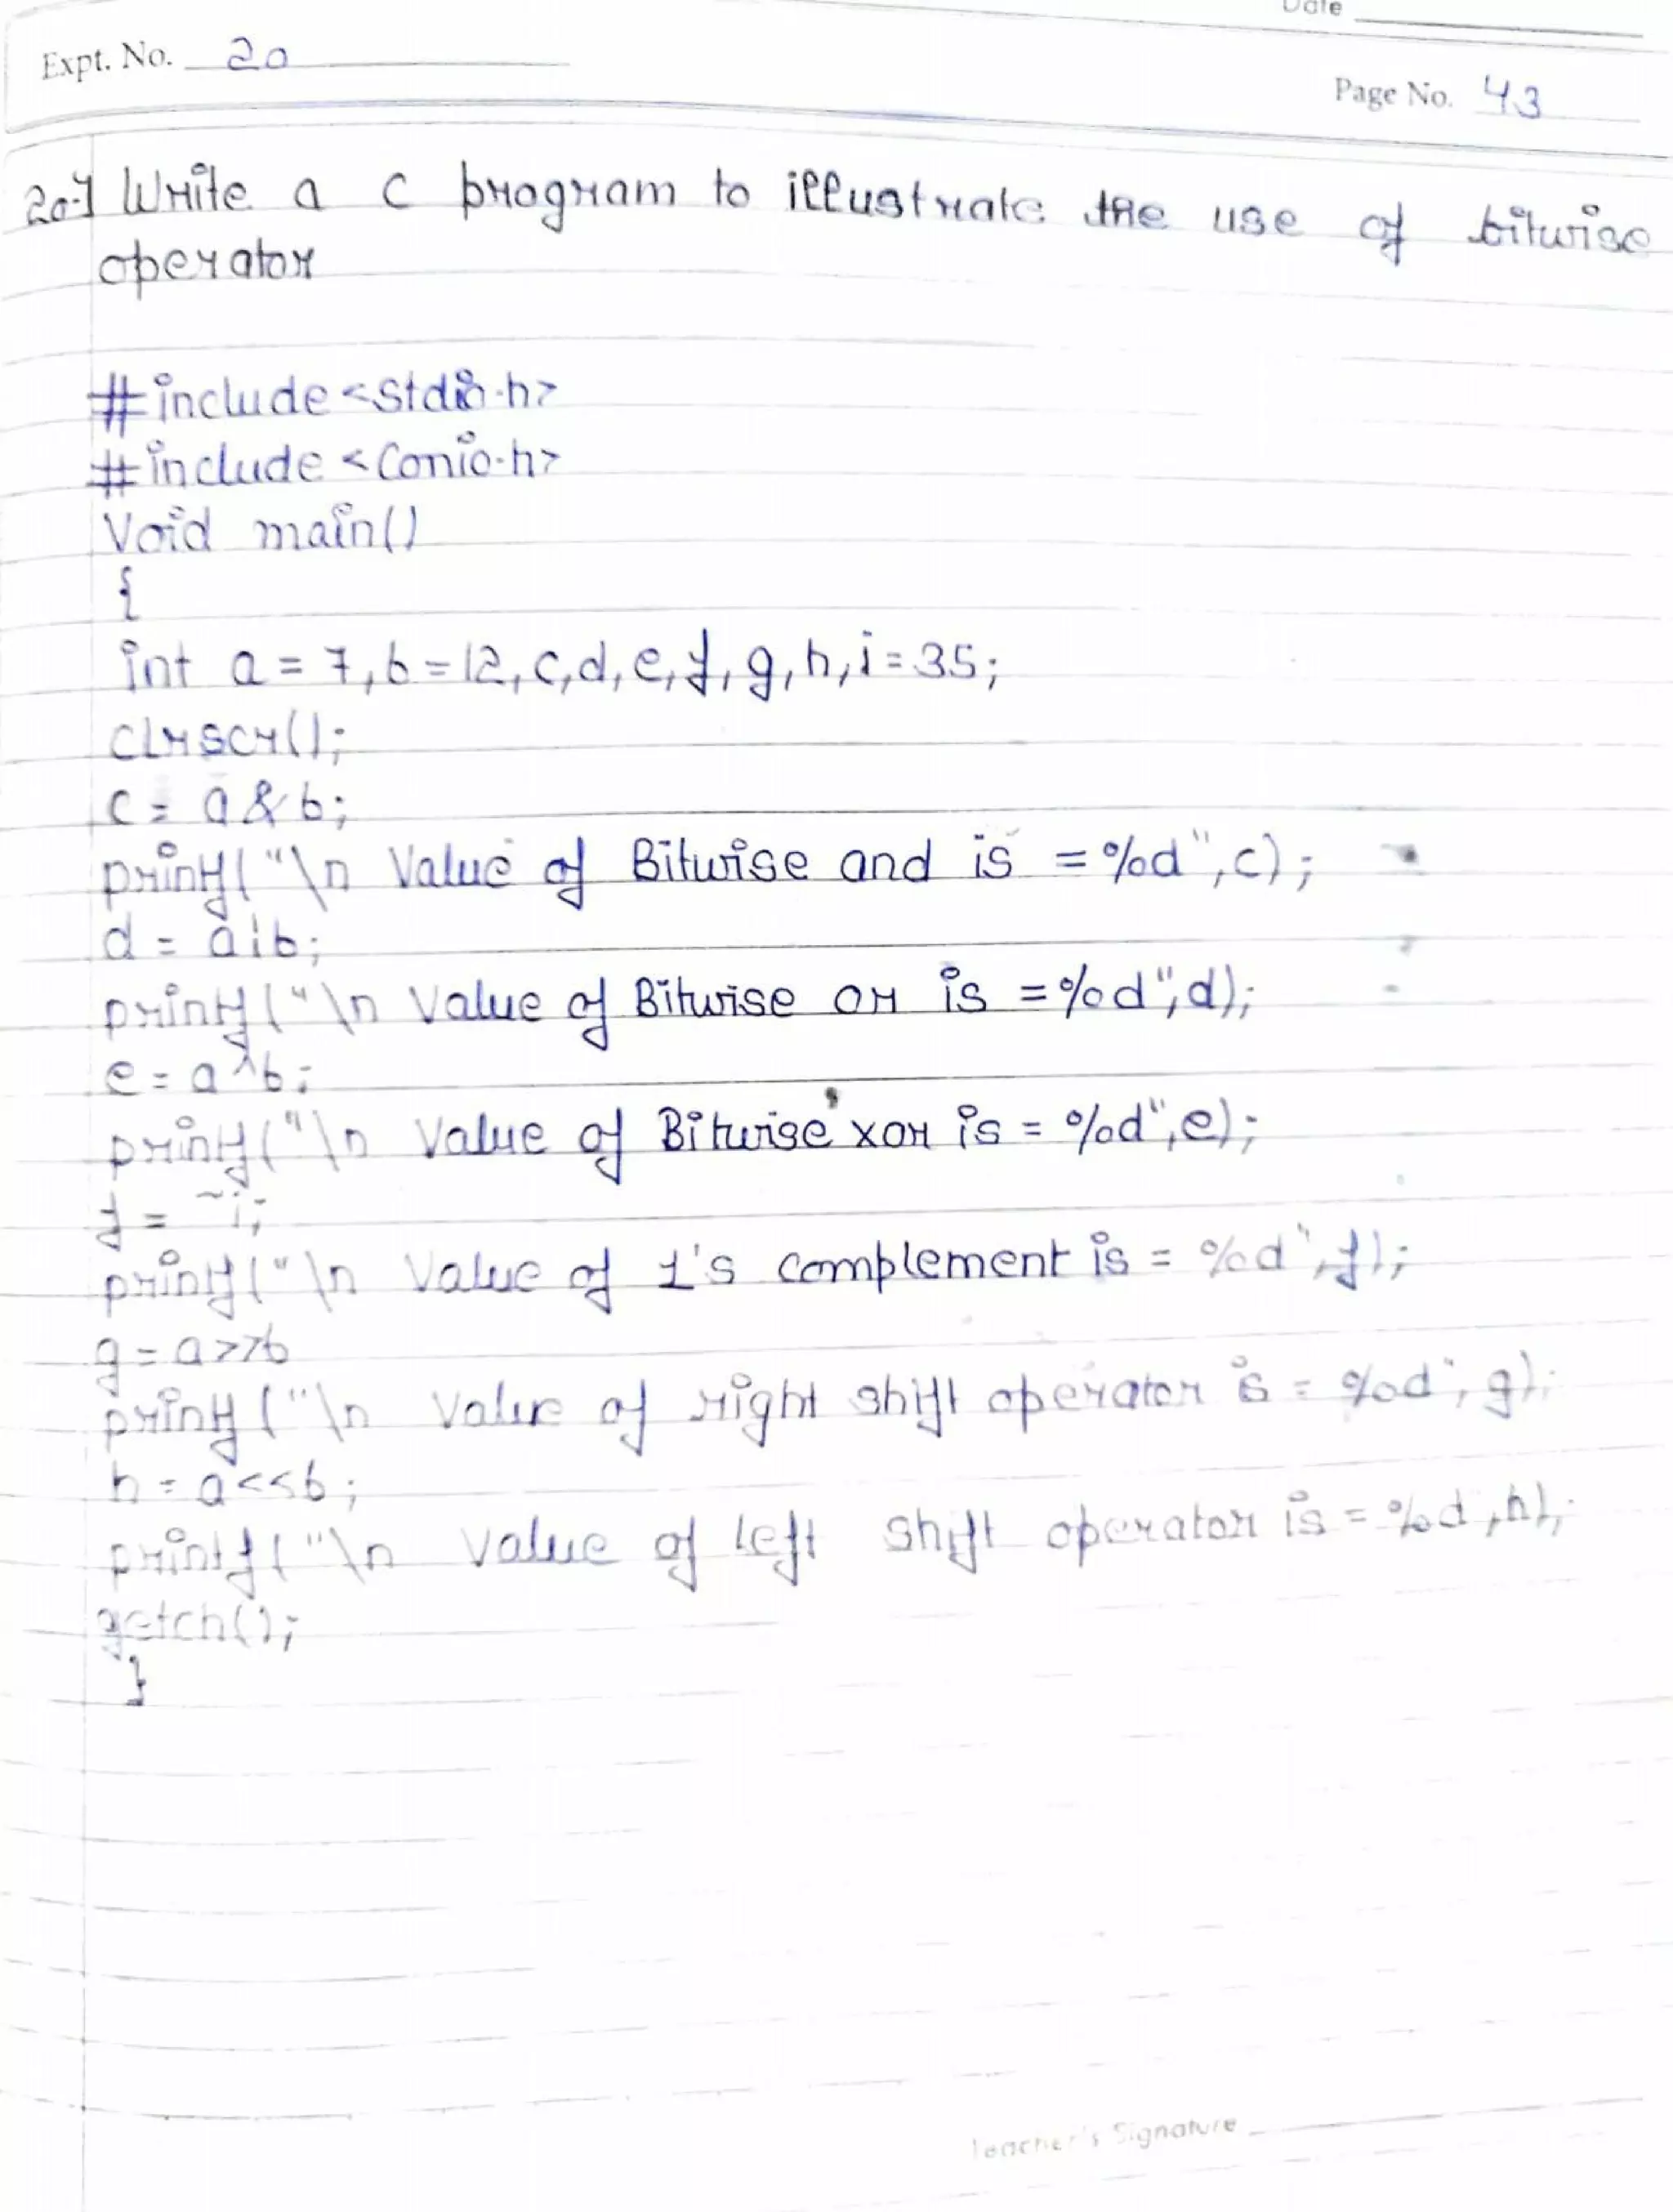 Date
Expt. No. 20
Page No. 43
20-1 Write a C program to illustrate the use of bitwise
operator
#include <stdio.h>
#include <Conio.h>
Void main()
{
int a = 7, b = 12, c, d, e, f, g, h, i = 35;
clrscr();
c = a & b;
printf("\n Value of Bitwise and is = %d", c);
d = a|b;
printf("\n Value of Bitwise or is = %d", d);
e = a^b;
printf("\n Value of Bitwise xor is = %d", e);
f = ~i;
printf("\n Value of 1's complement is = %d", f);
g = a>>b
printf("\n Value of right shift operator is = %d", g);
h = a<<b;
printf("\n Value of left shift operator is = %d, h);
getch();
}
Teacher's Signature